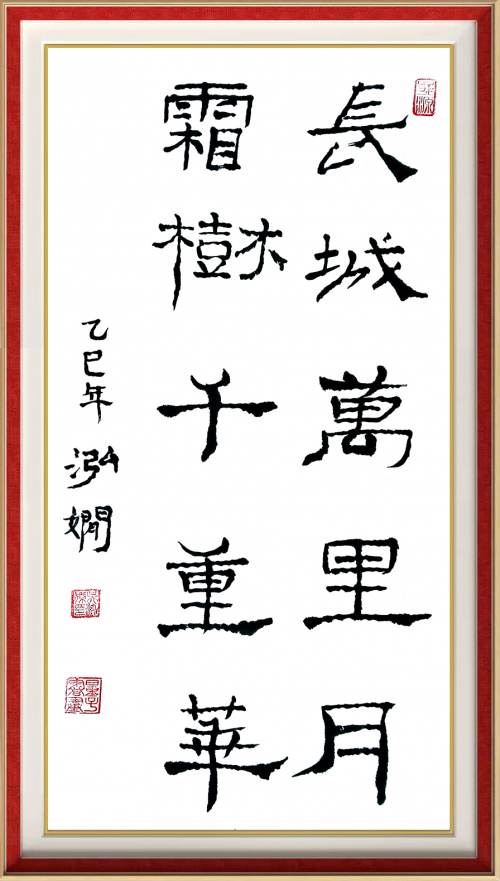 長城萬里月
霜樹千重華
乙巳年
泓嫺